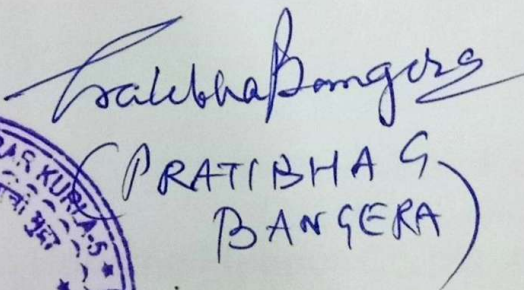 Pratibha Bangera
(PRATIBHA G.
BANGERA)
KURLA-5